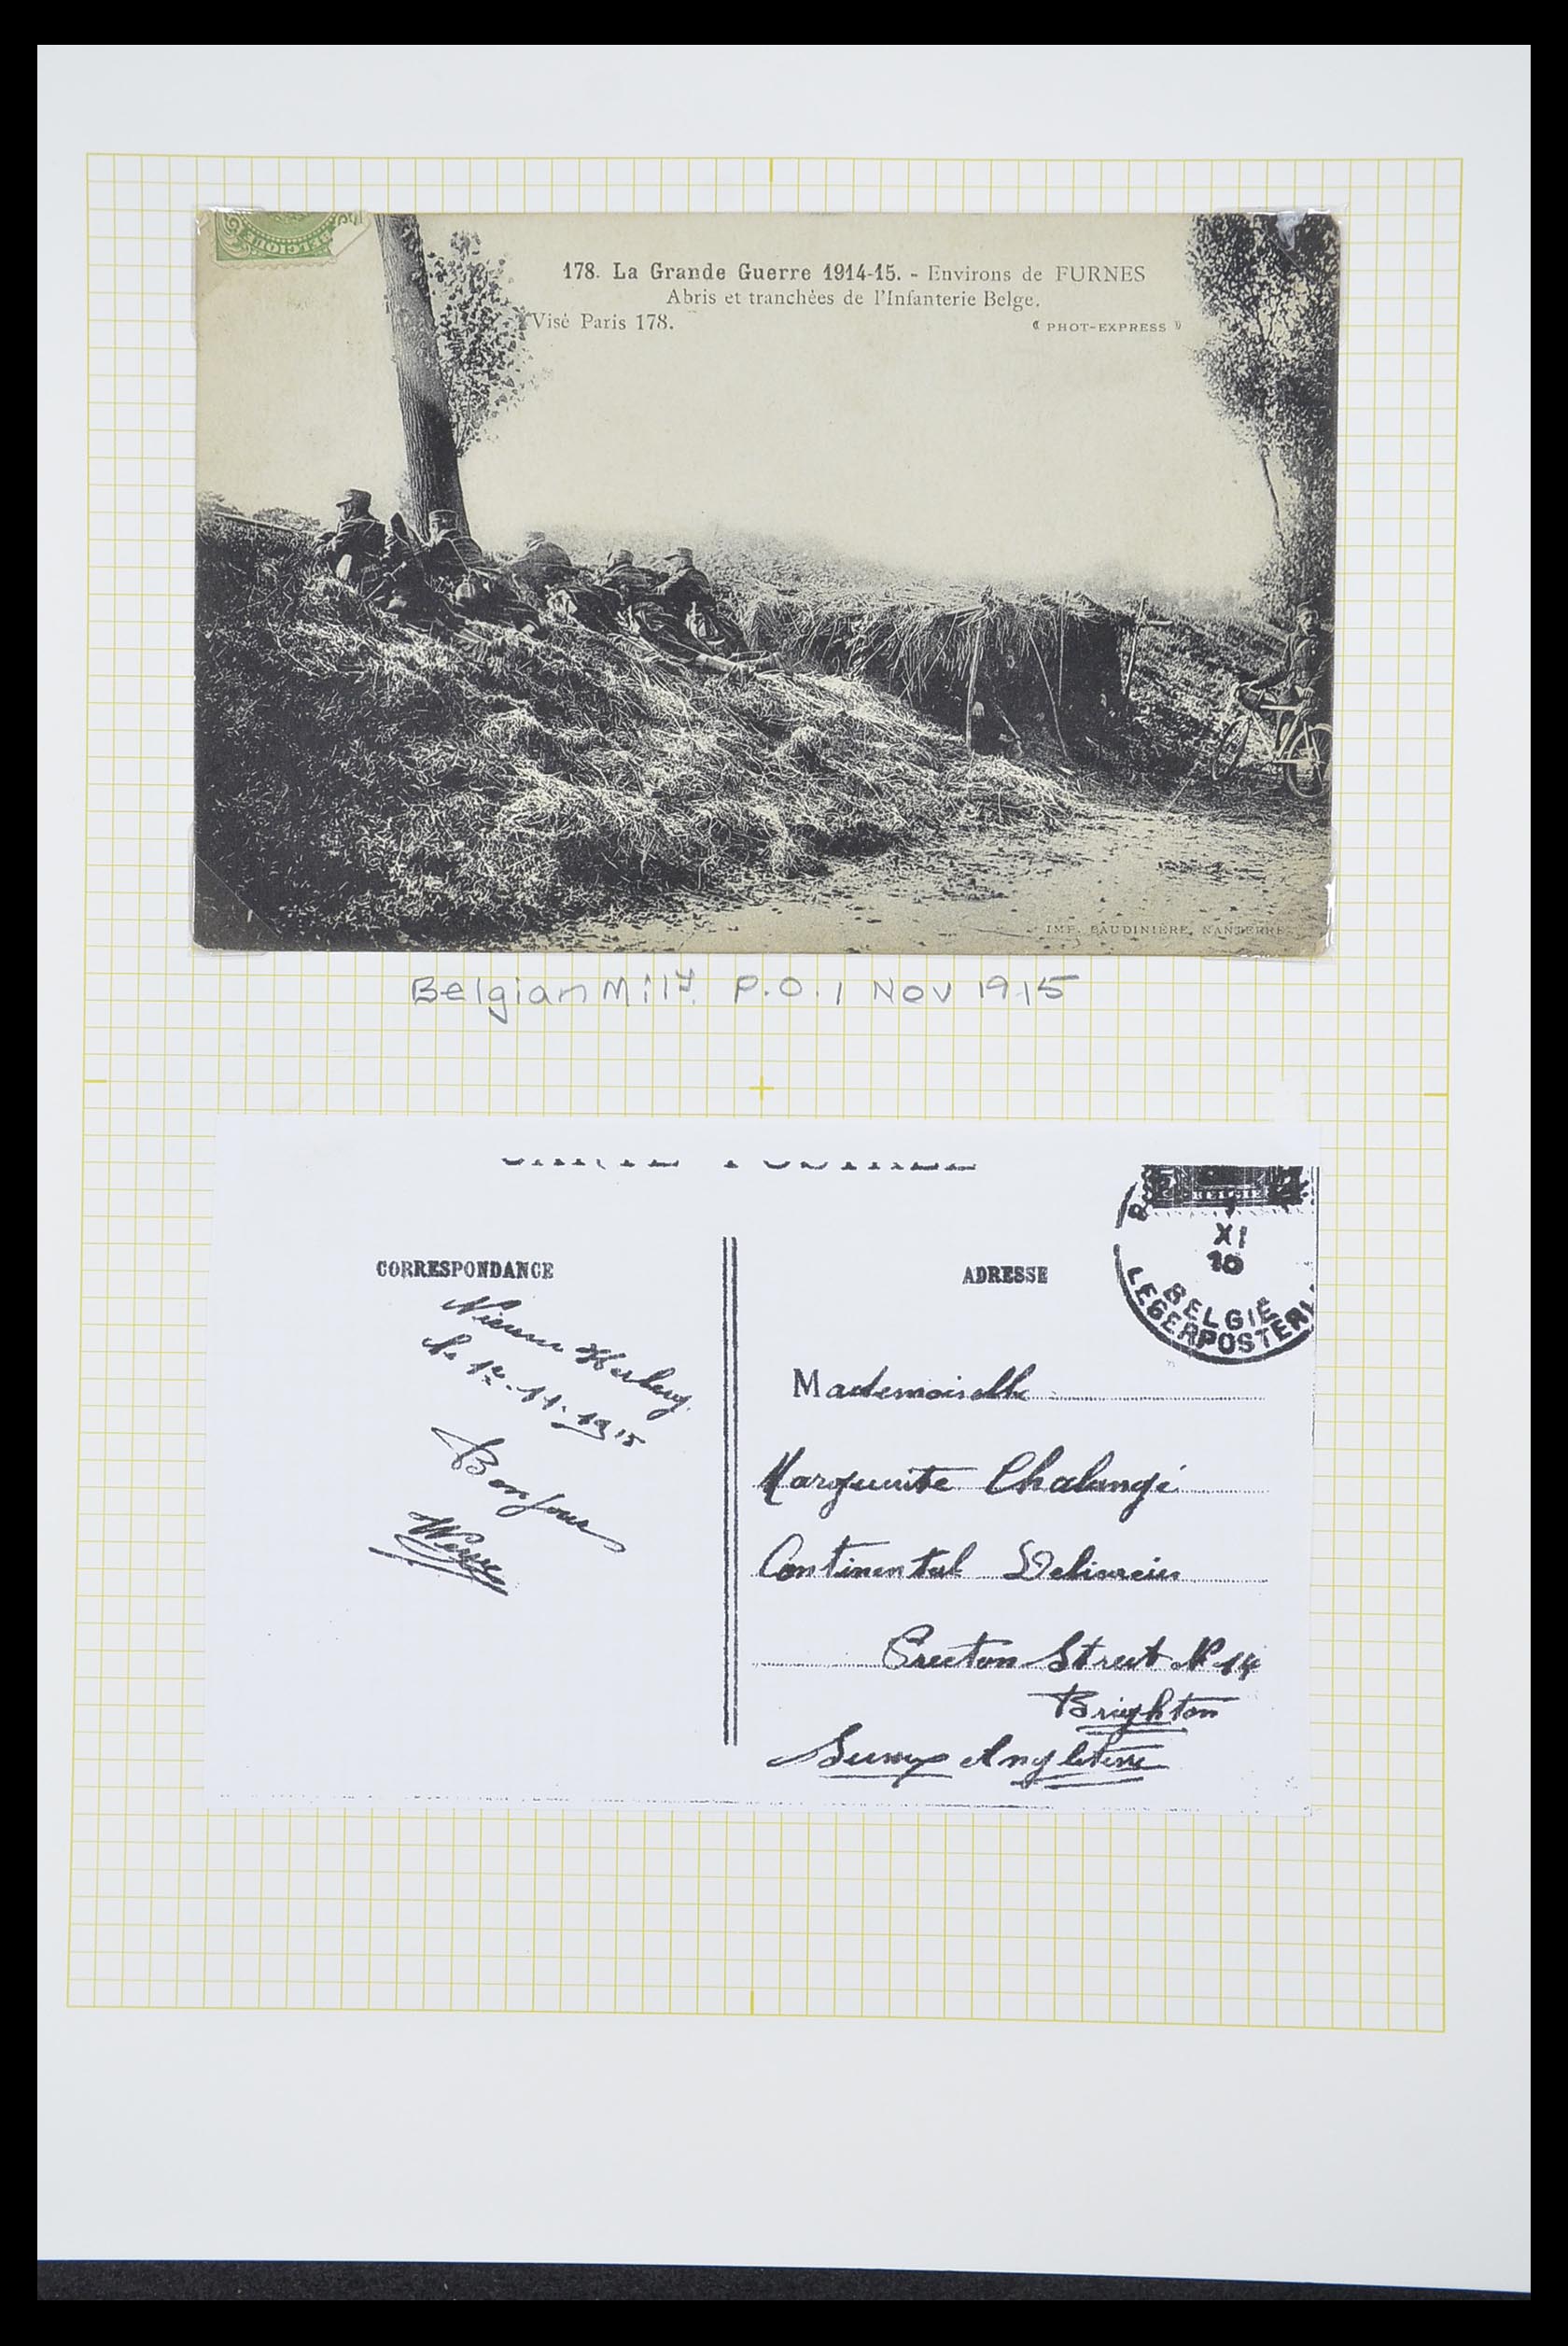 BELGIQUE
178. La Grande Guerre 1914-15. - Environs de FURNES
Abris et tranchées de l'Infanterie Belge.
Visé Paris 178.
« PHOT-EXPRESS »
IMP. BAUDINIÈRE, NANTERRE
Belgian Mily. P.O. 1 Nov 1915
CARTE POSTALE
BELGIE
XI
10
BELGIË
LEGERPOSTERIJ
CORRESPONDANCE
ADRESSE
le 1er-11-1915
Bonjour
Mademoiselle
Marguerite Chalangé
Continental
Street No 14
Brighton
Angleterre